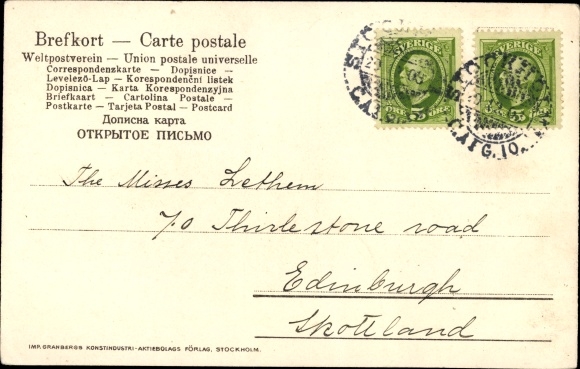 Brefkort — Carte postale
Weltpostverein — Union postale universelle
Correspondenzkarte — Dopisnice —
Levelező-Lap — Korespondenční listek
Dopisnica — Karta Korespondenzyjna
Briefkaart — Cartolina Postale —
Postkarte — Tarjeta Postal — Postcard
Дописна карта
ОТКРЫТОЕ ПИСЬМО
SVERIGE
SVERIGE
5 5 ÖRE
5 5
STOCKHOLM
C. ATG. 10.
The Misses Lethem
70 Thirlestone road
Edinburgh
Skottland
IMP. GRANBERGS KONSTINDUSTRI-AKTIEBOLAGS FÖRLAG, STOCKHOLM.